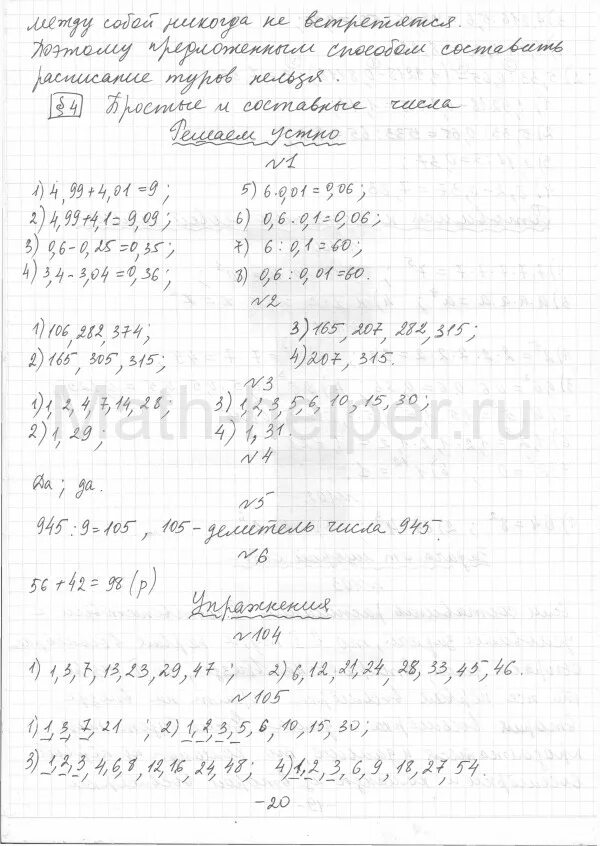 между собой никогда не встретятся.
Поэтому предложенным способом составить
расписание туров нельзя.
§4 Простые и составные числа
Решаем устно
№1
1) 4,99+4,01=9; 5) 6·0,01=0,06;
2) 4,99+4,1=9,09; 6) 0,6·0,1=0,06;
3) 0,6-0,25=0,35; 7) 6:0,1=60;
4) 3,4-3,04=0,36; 8) 0,6:0,01=60.
№2
1) 106, 282, 374; 3) 165, 207, 282, 315;
2) 165, 305, 315; 4) 207, 315.
№3
1) 1, 2, 4, 7, 14, 28; 3) 1, 2, 3, 5, 6, 10, 15, 30;
2) 1, 29; 4) 1, 31.
MathHelper.ru
№4
Да; да.
№5
945:9=105, 105-делитель числа 945.
№6
56+42=98 (р)
Упражнения
№104
1) 1, 3, 7, 13, 23, 29, 47; 2) 6, 12, 21, 24, 28, 33, 45, 46.
№105
1) 1, 3, 7, 21; 2) 1, 2, 3, 5, 6, 10, 15, 30;
3) 1, 2, 3, 4, 6, 8, 12, 16, 24, 48; 4) 1, 2, 3, 6, 9, 18, 27, 54.
-20